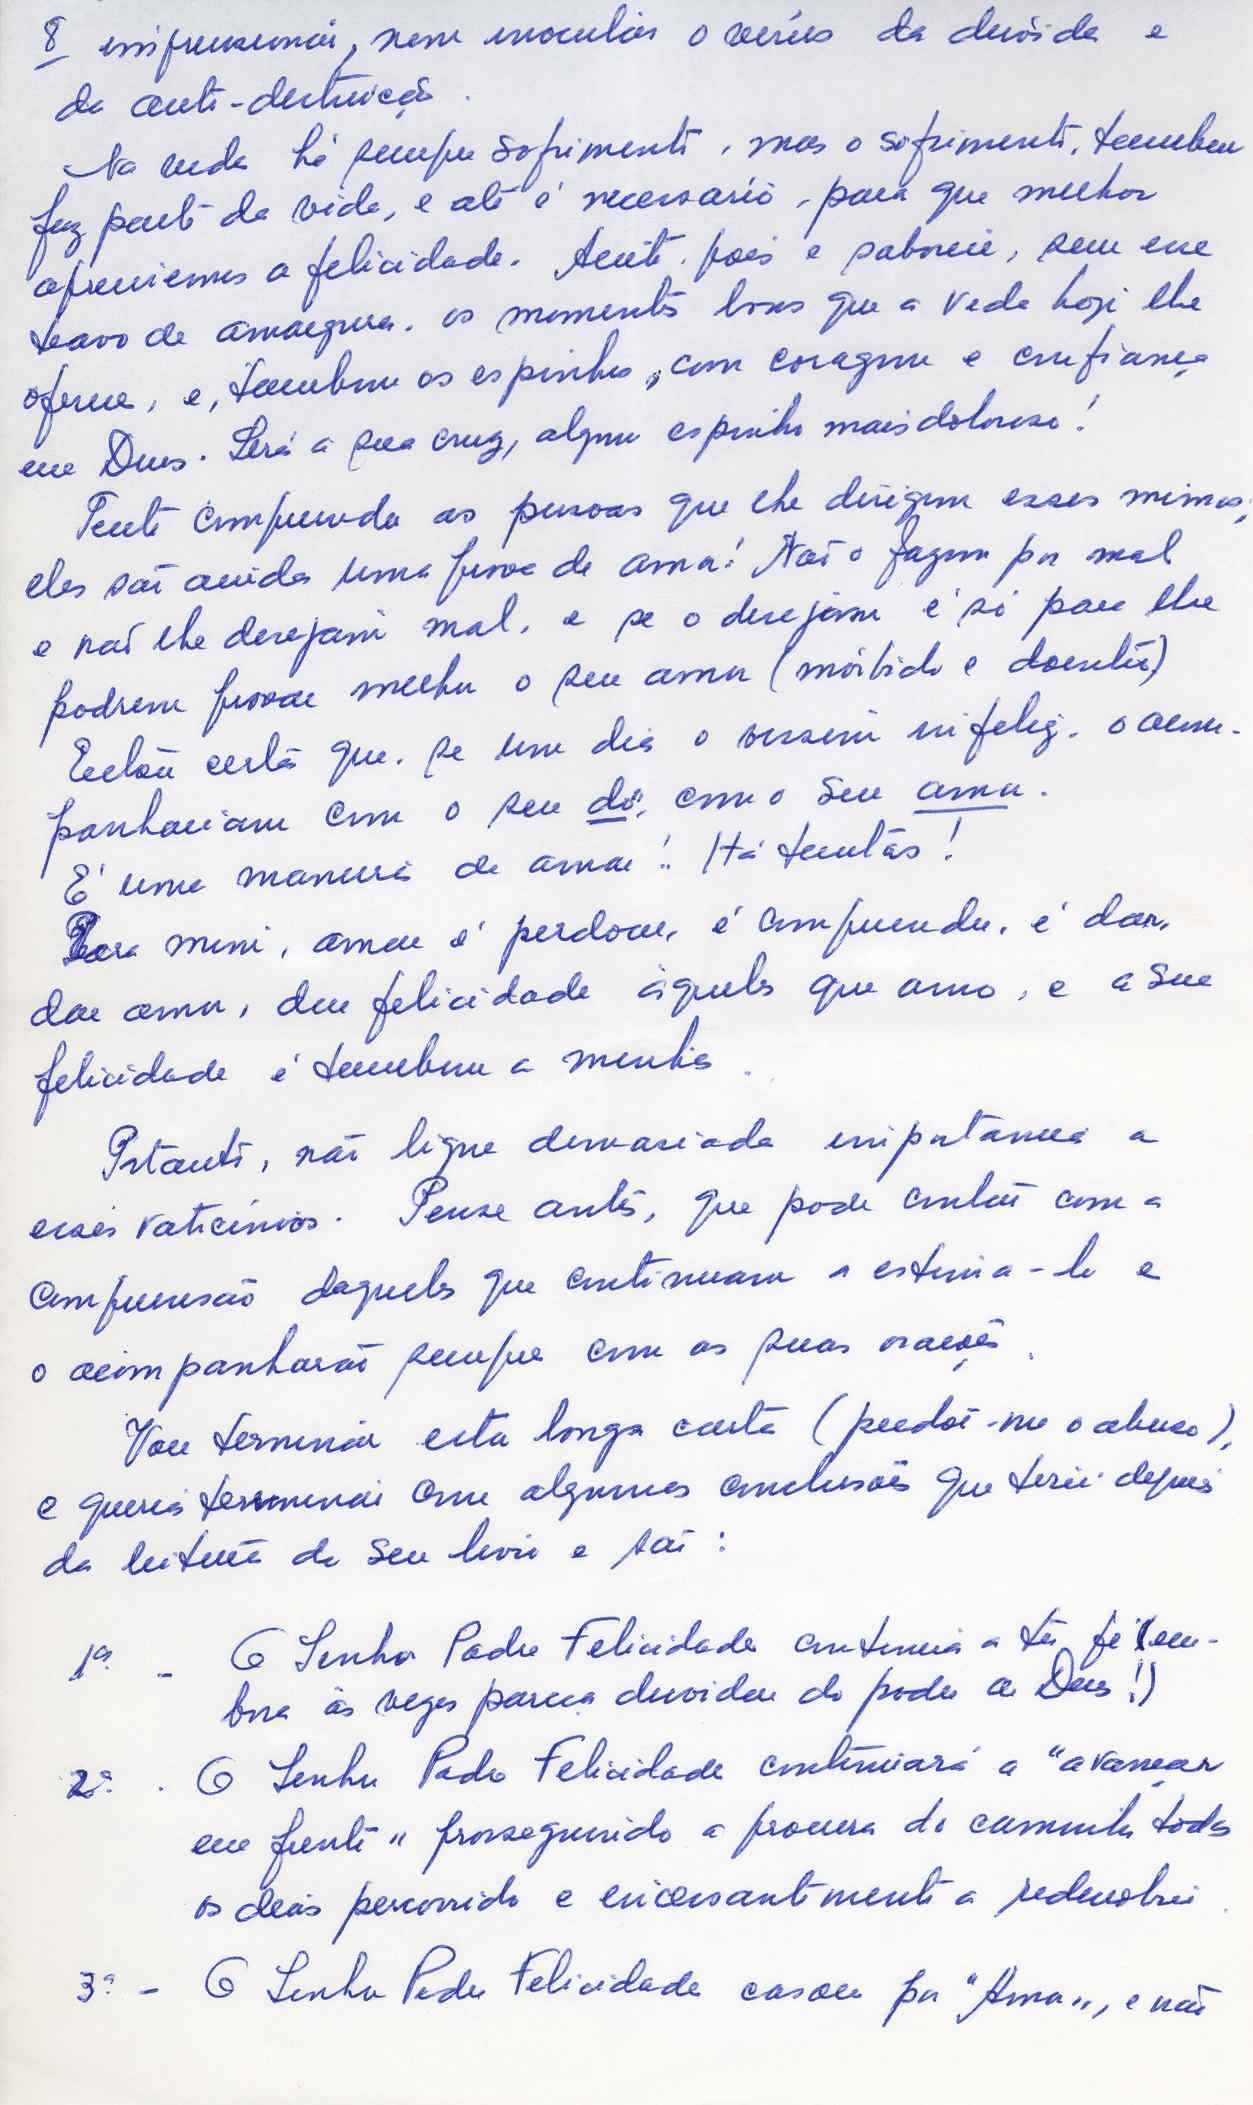 8 impressionar, nem inocular o vírus da dúvida e
da auto-destruição.
Na vida há sempre sofrimento, mas o sofrimento, também
faz parte da vida, e até é necessário, para que melhor
apreciemos a felicidade. Aceite, pois e saboreie, sem esse
travo de amargura, os momentos bons que a vida hoje lhe
oferece, e, também os espinhos, com coragem e confiança
em Deus. Será a sua cruz, algum espinho mais doloroso!
Tente compreender as pessoas que lhe dirigem esses mimos;
eles são ainda uma prova de amor! Não o fazem por mal
e não lhe desejam mal, e se o desejam é só para lhe
poderem provar melhor o seu amor (mórbido e doentio)
Estou certa que, se um dia o vissem infeliz, o acom-
panhariam com o seu dó, com o seu amor.
É uma maneira de amar!! Há tantas!
Para mim, amar é perdoar, é compreender, é dar,
dar amor, dar felicidade àqueles que amo, e a sua
felicidade é também a minha.
Portanto, não ligue demasiada importância a
esses vaticínios. Pense antes, que pode contar com a
compreensão daqueles que continuam a estimá-lo e
o acompanharão sempre com as suas orações.
Vou terminar esta longa carta (perdoe-me o abuso),
e queria terminar com algumas conclusões que tirei depois
da leitura do seu livro e são:
1ª. - O Senhor Padre Felicidade continua a ter fé (em-
bora às vezes pareça duvidar do poder de Deus!)
2ª. - O Senhor Padre Felicidade continuará a "avançar
em frente" prosseguindo a procura do caminho todos
os dias percorrido e incessantemente a redescobrir.
3ª. - O Senhor Padre Felicidade casou por "Amor", e não